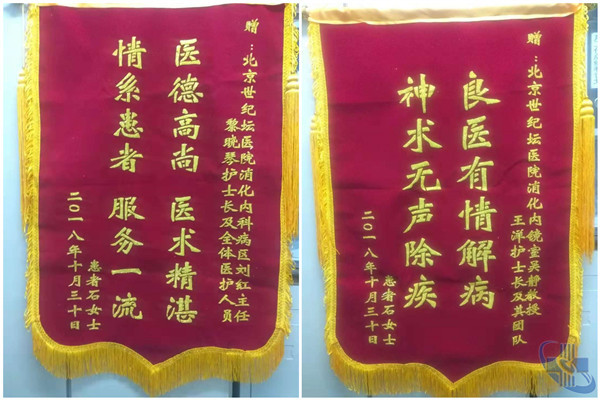 赠：北京世纪坛医院消化内科病区刘红主任
黎晓琴护士长及全体医护人员
医德高尚 医术精湛
情系患者 服务一流
患者石女士
二〇一八年十月三十日
赠：北京世纪坛医院消化内镜室吴静教授
王洋护士长及其团队
良医有情解病
神术无声除疾
患者石女士
二〇一八年十月三十日